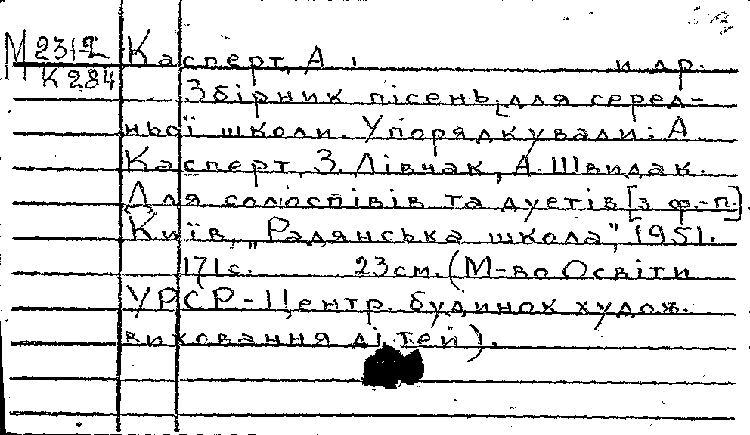 М 231-2
К 284
Касперт, А. и др.
Збірник пісень [для серед-
ньої школи. Упорядкували: А
Касперт, З. Лівчак, А. Швидак.
Для солоспівів та дуетів [з ф.-п.]
Київ, "Радянська школа", 1951.
171с. 23см. (М-во Освіти
УРСР - Центр. будинок худож.
виховання дітей).